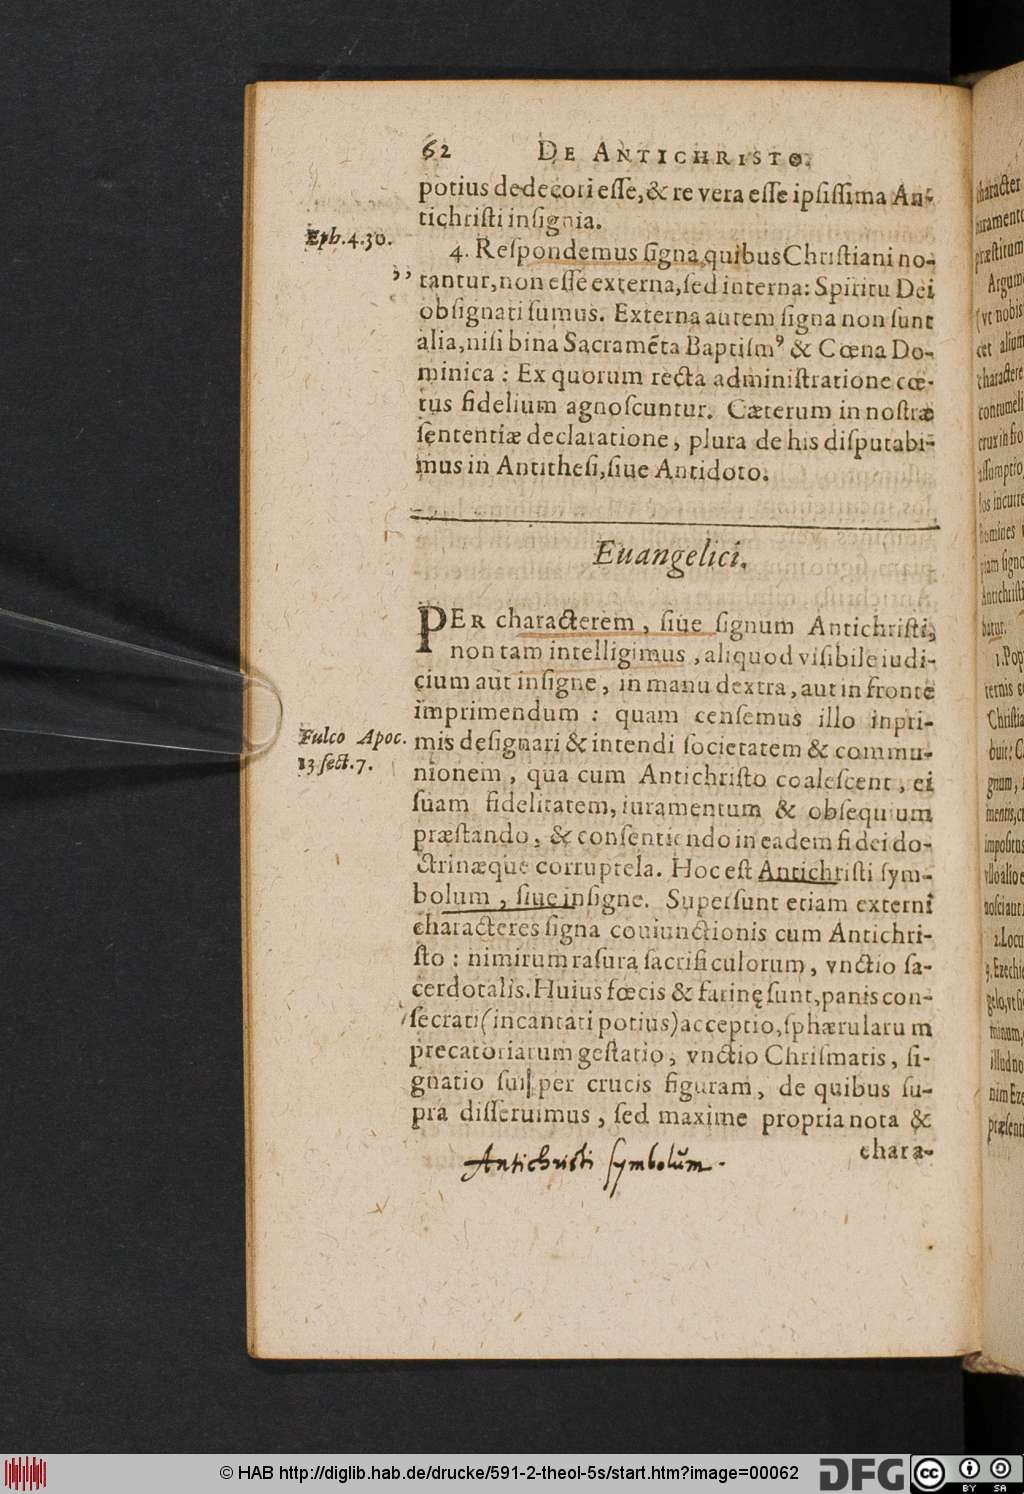 62 DE ANTICHRISTO.
potius dedecori eſſe, & re vera eſſe ipſiſſima An-
tichriſti inſignia.
Eph. 4. 30.
4. Reſpondemus ſigna, quibus Chriſtiani no-
,, tantur, non eſſe externa, ſed interna: Spiritu Dei
obſignati ſumus. Externa autem ſigna non ſunt
alia, niſi bina Sacramēta Baptiſmꝰ & Cœna Do-
minica : Ex quorum recta adminiſtratione cœ-
tus fidelium agnoſcuntur. Cæterum in noſtræ
ſententiæ declaratione, plura de his diſputabi-
mus in Antitheſi, ſiue Antidoto.
Euangelici.
PER characterem, ſiue ſignum Antichriſti,
non tam intelligimus, aliquod viſibile iudi-
cium aut inſigne, in manu dextra, aut in fronte
imprimendum : quam cenſemus illo inpri-
Fulco Apoc.
13. ſect. 7.
mis deſignari & intendi ſocietatem & commu-
nionem, qua cum Antichriſto coaleſcent, ei
ſuam fidelitatem, iuramentum & obſequium
præſtando, & conſentiendo in eadem fidei do-
ctrinæque corruptela. Hoc eſt Antichriſti ſym-
bolum, ſiue inſigne. Superſunt etiam externi
characteres ſigna coniunctionis cum Antichri-
ſto : nimirum raſura ſacrificulorum, vnctio ſa-
cerdotalis. Huius fœcis & farinę ſunt, panis con-
ſecrati (incantati potius) acceptio, ſphærularum
precatoriarum geſtatio, vnctio Chriſmatis, ſi-
gnatio ſui per crucis figuram, de quibus ſu-
pra diſſeruimus, ſed maxime propria nota &
chara-
Antichriſti ſymbolŭm.
character
iuramento
præſtitum
Argum
(vt nobis
cet alium
character
contumeli
crux in fro
aſſumptio
los incurre
homines
piam ſigno
Antichriſt
batur.
1. Pop
ternis
Chriſtia
buit: C
gnum,
mentis,
impoſitus
vllo alio
noſci aut
2. Locu
9. Ezechie
gelo, vt
minum,
illud no
nim Eze
præſenti
© HAB http://diglib.hab.de/drucke/591-2-theol-5s/start.htm?image=00062
DFG
cc
BY SA